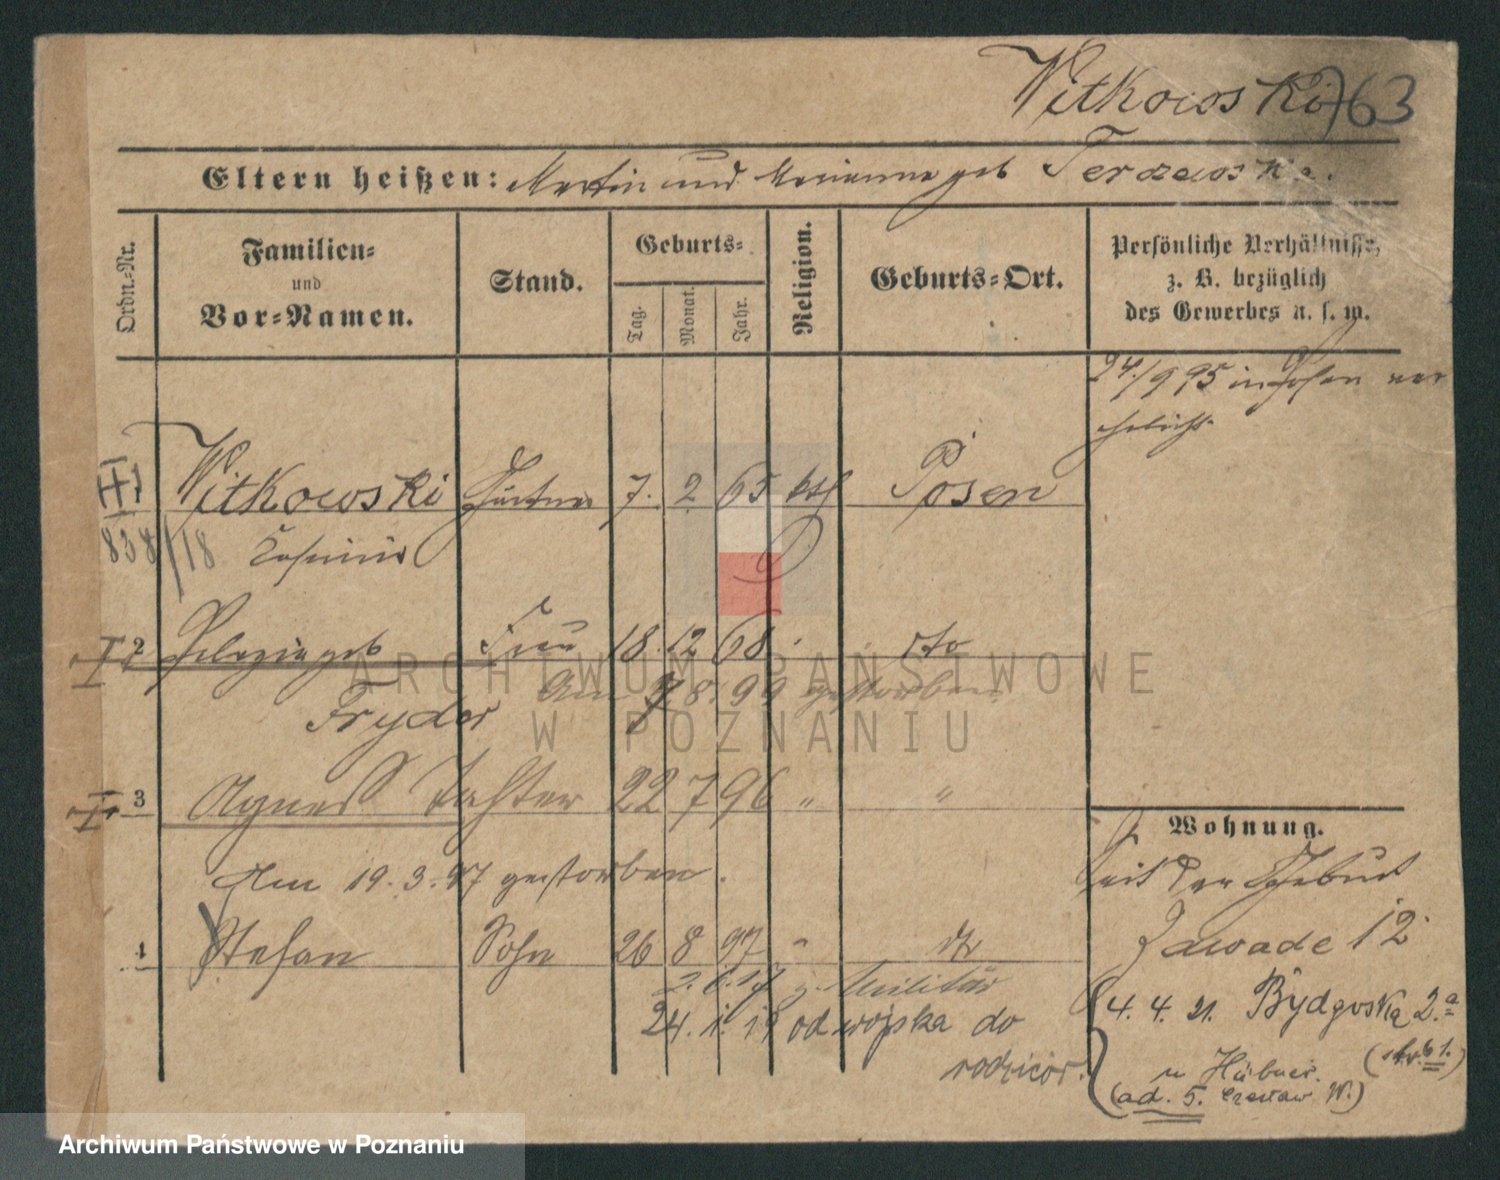 Witkowski 763
Eltern heißen: Martin und Marianna geb Terzewska.
Ordn.-Nr.
Familien- und Vor-Namen.
Stand.
Geburts-
Tag.
Monat.
Jahr.
Religion.
Geburts-Ort.
Persönliche Verhältnisse, z. B. bezüglich des Gewerbes u. s. w.
24./9 95 in Posen ver
ehelicht.
1 Witkowski 7. 2 65 kth Posen
838/18 Casimir
2 Pelagia geb Frau 18. 12 68 dto
Fryder Am 8. 99 gestorben
3 Agnes Tochter 22 7 96 " "
Am 19. 3. 97 gestorben.
4 Stefan Sohn 26 8 97 " dto
z. Militär
24. 1. 19 od wojska do
rodziców.
Wohnung.
Seit der Geburt
Zawade 12
4. 4. 21. Bydgoska 2.a
u Hübner.
(ad. 5. Czesław W.)
ARCHIWUM PAŃSTWOWE
W POZNANIU
Archiwum Państwowe w Poznaniu